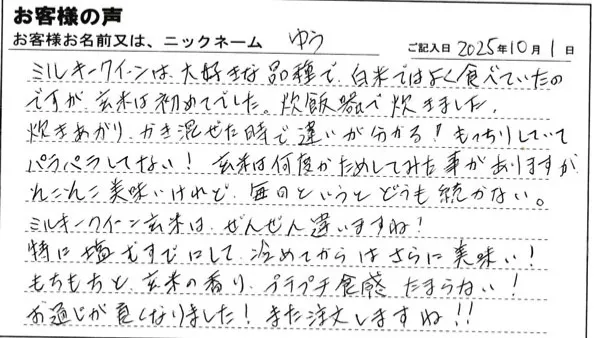 お客様の声
お客様お名前又は、ニックネーム ゆう ご記入日 2025年10月1日
ミルキークイーンは、大好きな品種で、白米ではよく食べていたの
ですが、玄米は初めてでした。炊飯器で炊きました。
炊きあがり、かき混ぜた時で違いが分かる!もっちりしていて
パラパラしてない!玄米は何度かためしてみた事がありますが、
んこんこ美味いけれど、毎日というとどうも続かない。
ミルキークイーン玄米は、ぜんぜん違いますね!
特に塩むすびにして、冷めてからはさらに美味い!
もちもちと、玄米の香り、プチプチ食感 たまらない!
お通じが良くなりました!また注文しますね!!